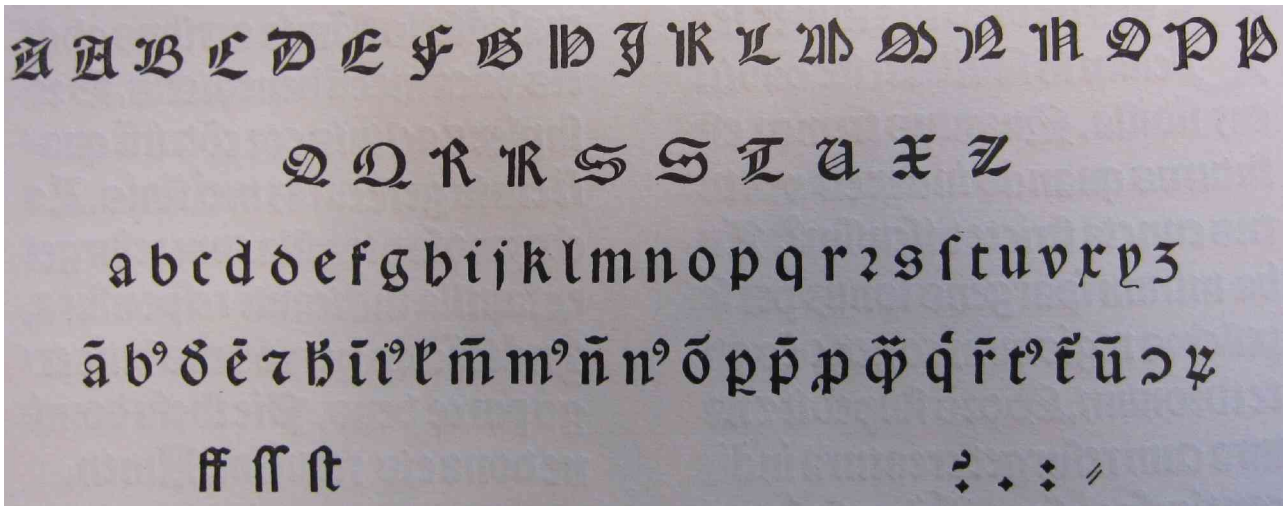 A A B C D E F G H J K L M M N N O P P
Q Q R R S S T U X Z
a b c d d e f g h i j k l m n o p q r ꝛ s ſ t u v x y z
ā bꝰ ẟ ē ⁊ ħ ī iꝰ m̄ mꝰ n̄ nꝰ ō ꝑ p̄ ꝓ q̃̈ q̇ r̄ tꝰ ū ɔ ꝝ
ff ſſ ſt ? . : ⸗